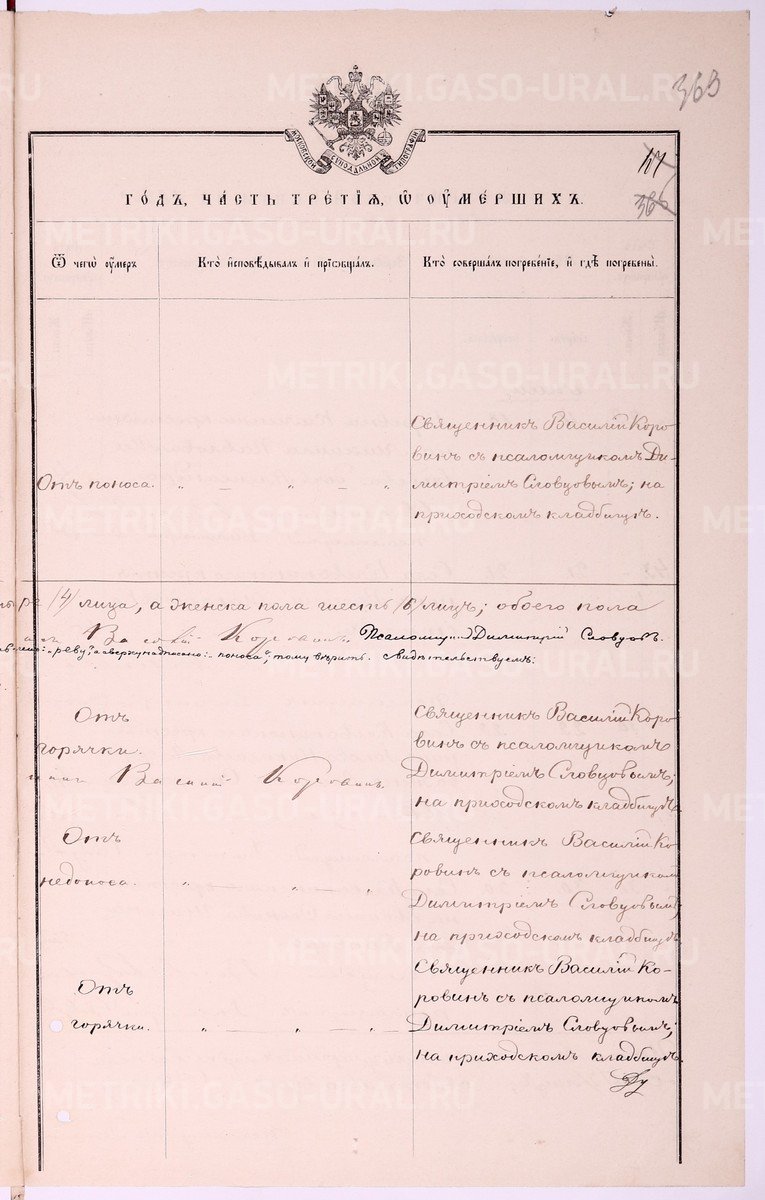 363
МОСКОВСКОЙ СѴНОДАЛЬНОЙ ТИПОГРАФІИ
366
ГОДЪ, ЧАСТЬ ТРЕТІЯ, Ѿ ОУМЕРШИХЪ.
Ѿ чегѡ оумеръ
Кто исповѣдывалъ и пріобщалъ.
Кто совершалъ погребеніе, и гдѣ погребены.
Отъ поноса.
" — " — "
Священникъ Василій Коро
винъ съ псаломщикомъ Ди-
митріемъ Словцовымъ; на
приходскомъ кладбищѣ.
ре /4/ лица, а женска пола шесть /6/ лицъ; обоего пола
Василій Коровинъ. Псаломщ. Димитрій Словцовъ.
"реву", а сверху надписано: "поноса", тому вѣрить. Свидѣтельствуемъ:
Отъ
горячки.
Василій Коровинъ.
Священникъ Василій Коро
винъ съ псаломщикомъ
Димитріемъ Словцовымъ;
на приходскомъ кладбищѣ.
Отъ
недоноса.
" " — "
Священникъ Василій Ко
ровинъ съ псаломщикомъ
Димитріемъ Словцовымъ;
на приходскомъ кладбищѣ.
Отъ
горячки.
" — " — "
Священникъ Василій Ко-
ровинъ съ псаломщикомъ
Димитріемъ Словцовымъ;
на приходскомъ кладбищѣ.
METRIKI.GASO-URAL.RU